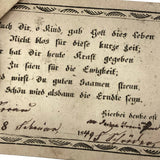 uch Dir, o Kind, gab Gott dies Leben
Nicht blos für diese kurze Zeit;
er hat Dir heute Kraft gegeben
Zu säen für die Ewigkeit;
wirst Du guten Saamen streun,
Schön wird alsdann die Erndte seyn.
Hierbei denke oft
8 Februar 1849